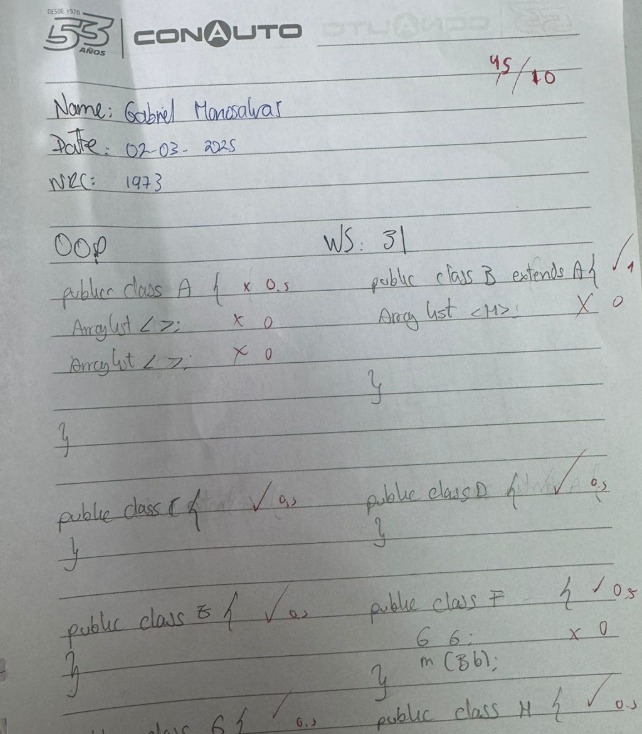 DESDE 1970
53 AÑOS CONAUTO
45/10
Name: Gabriel Manosalvas
Date: 02-03-2025
NRC: 1973
OOP WS: 31
public class A { x 0.5 public class B extends A { ✓ 1
Arraylist < >; x 0 Array list <H>: x 0
Arraylist < >; x 0
}
}
public class C { ✓ 0,5 public class D { ✓ 0,5
} }
public class E { ✓ 0.5 public class F { ✓ 0.5
G G; x 0
} m (Bb);
}
class G { ✓ 0.5 public class H { ✓ 0.5